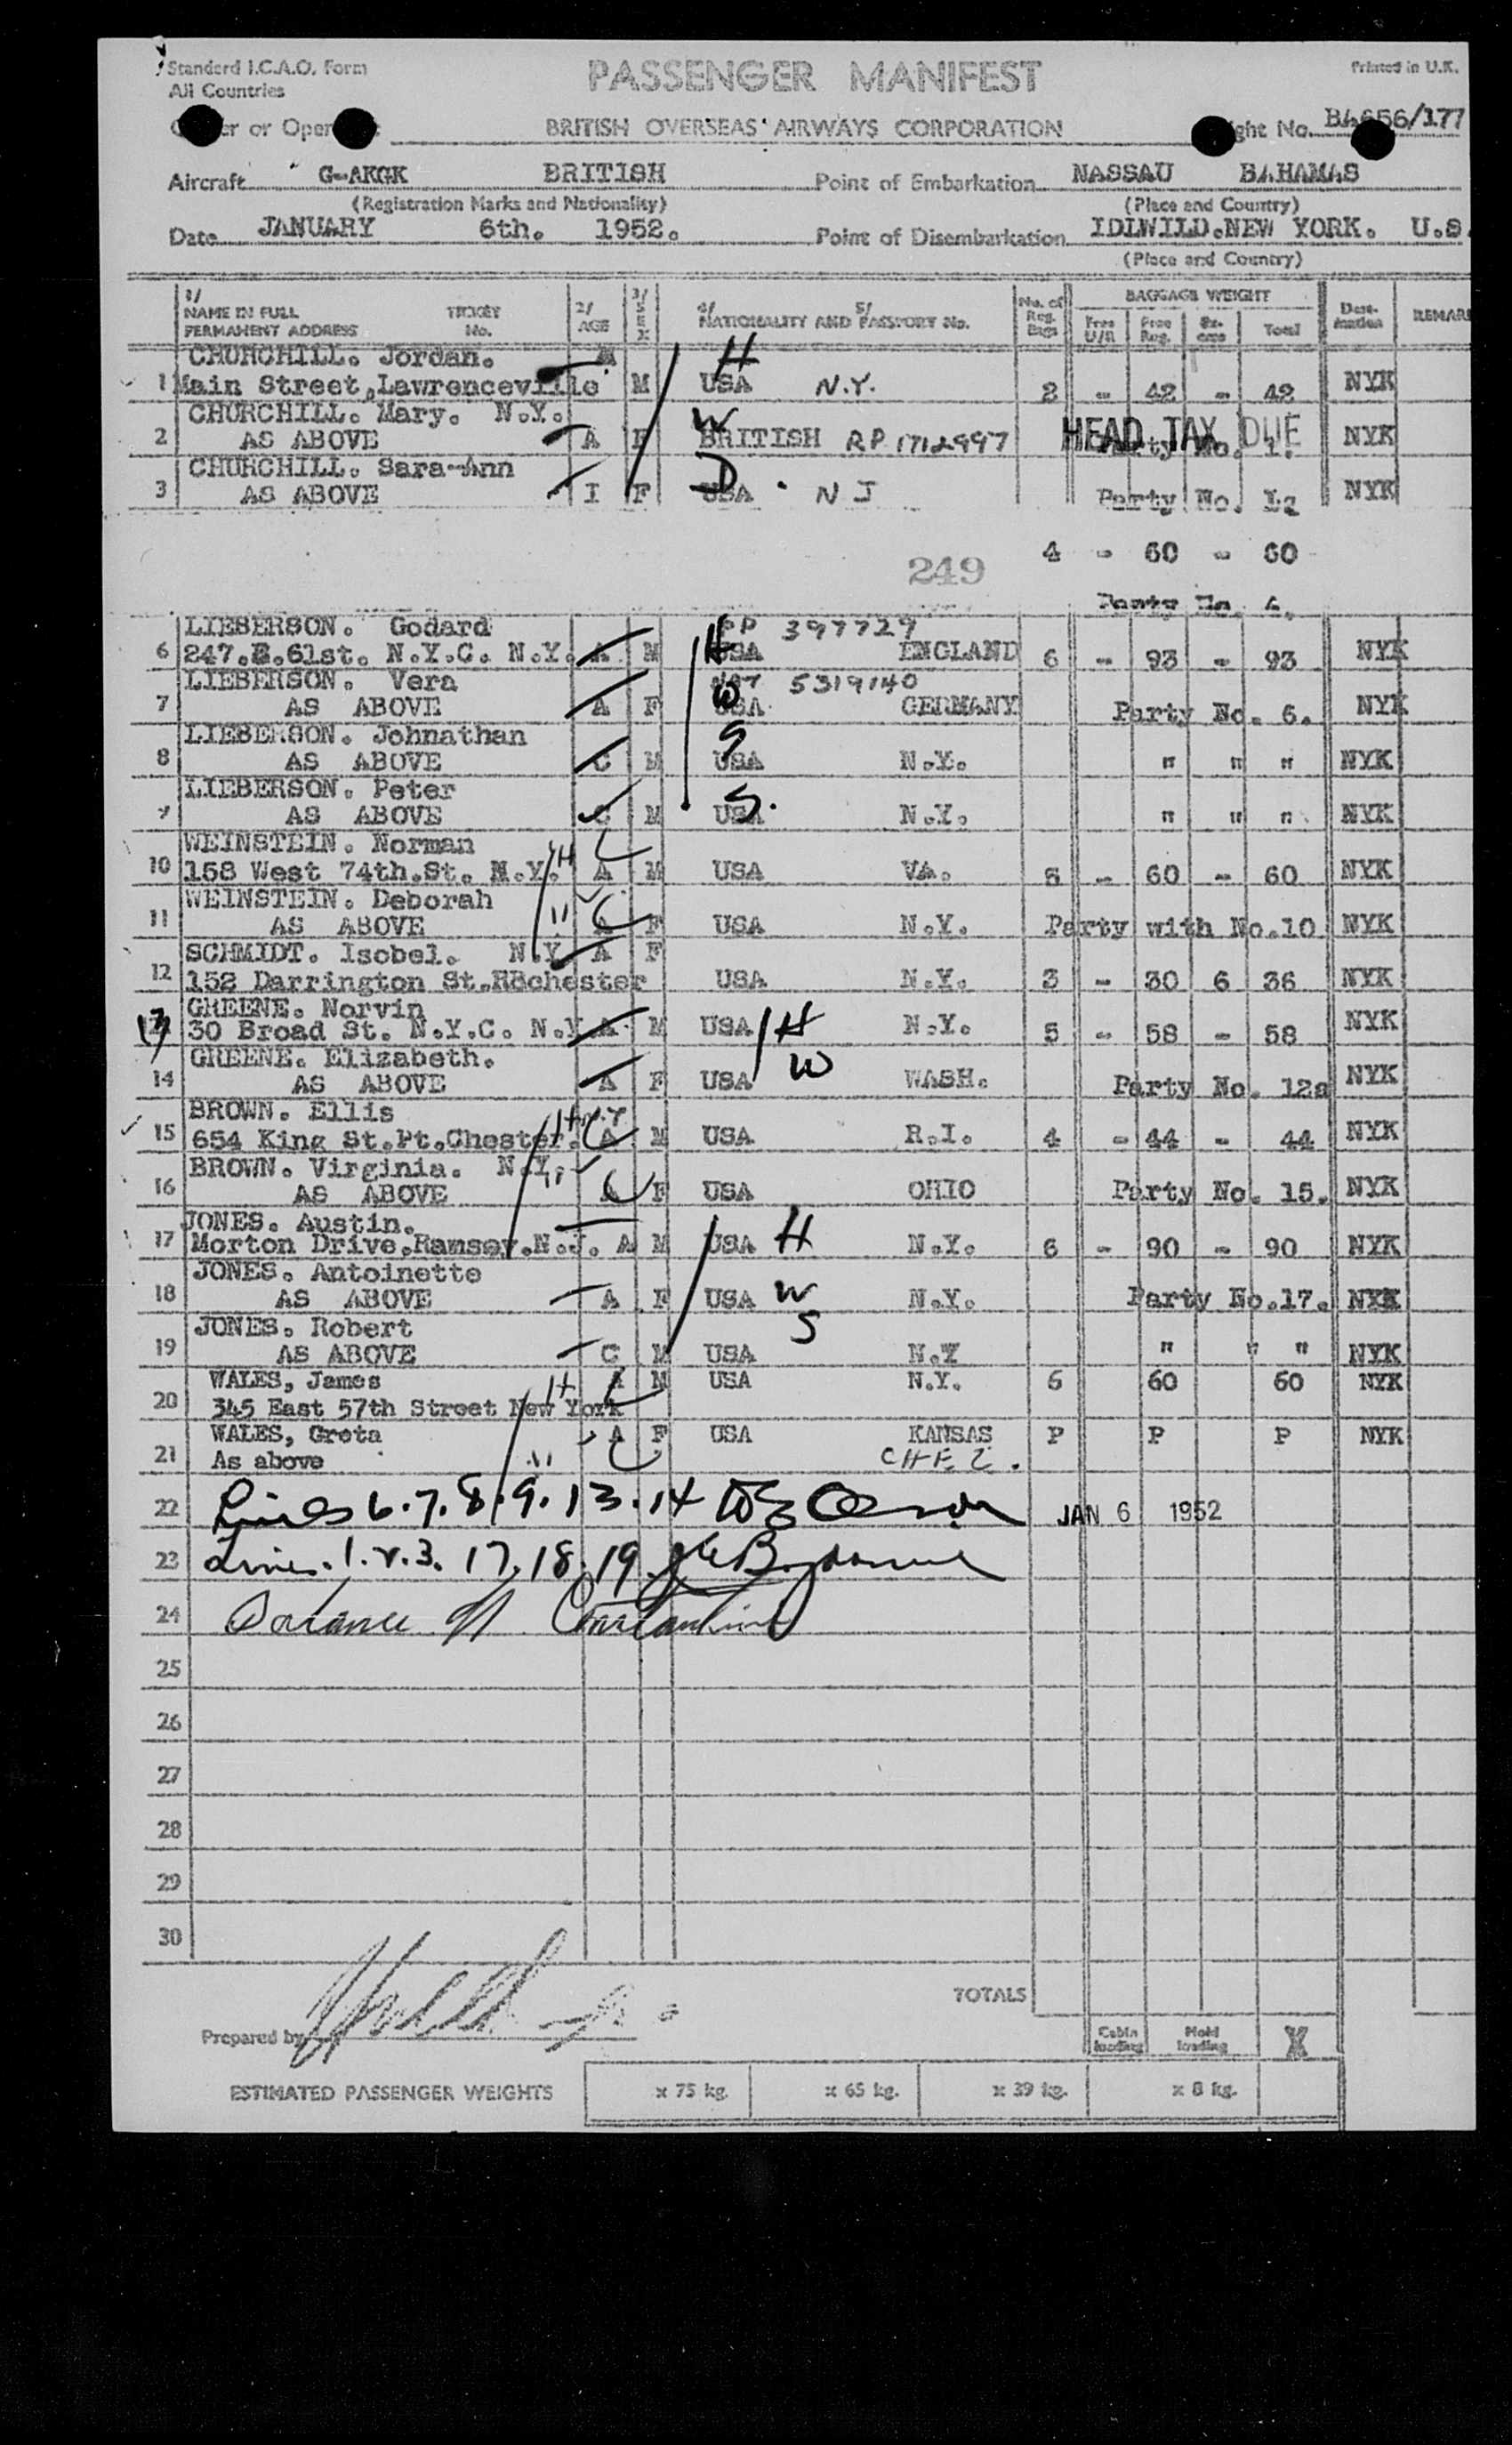 Standard I.C.A.O. Form
All Countries
PASSENGER MANIFEST
Printed in U.K.
BRITISH OVERSEAS AIRWAYS CORPORATION
Aircraft G-AKGK BRITISH
(Registration Marks and Nationality)
Point of Embarkation NASSAU BAHAMAS
(Place and Country)
Date JANUARY 6th. 1952.
Point of Disembarkation IDLWILD.NEW YORK. U.S.
(Place and Country)
1/ NAME IN FULL PERMANENT ADDRESS TICKET No. 2/ AGE 3/ SEX 4/ 5/ NATIONALITY AND PASSPORT No. No. of Reg. Bags BAGGAGE WEIGHT Free U/R Free Reg. Ex-cess Total Dest-ination REMAR
CHURCHILL. Jordan.
1 Main Street,Lawrenceville M H USA N.Y. 2 - 42 - 42 NYK
CHURCHILL. Mary. N.Y.
2 AS ABOVE A F W BRITISH RP 1712997 HEAD TAX DUE Party No. 1. NYK
CHURCHILL. Sara-Ann
3 AS ABOVE I F D USA . N J Party No. 1. NYK
249 4 - 60 - 60
Party No. 4.
LIEBERSON. Godard PP 397729
6 247.E.61st. N.Y.C. N.Y. A M H USA ENGLAND 6 - 93 - 93 NYK
LIEBERSON. Vera NAT 5319140
7 AS ABOVE A F W USA GERMANY Party No. 6. NYK
LIEBERSON. Johnathan S
8 AS ABOVE C M USA N.Y. " " " NYK
LIEBERSON. Peter
9 AS ABOVE C M USA S. N.Y. " " " NYK
WEINSTEIN. Norman
10 158 West 74th.St. N.Y. H A M USA VA. 5 - 60 - 60 NYK
WEINSTEIN. Deborah
11 AS ABOVE A F USA N.Y. Party with No.10 NYK
SCHMIDT. Isobel. N.Y. A F
12 152 Darrington St.ROchester USA N.Y. 3 - 30 6 36 NYK
GREENE. Norvin
13 30 Broad St. N.Y.C. N.Y A M USA H N.Y. 5 - 58 - 58 NYK
GREENE. Elizabeth.
14 AS ABOVE A F USA W WASH. Party No. 12a NYK
BROWN. Ellis
15 654 King St.Pt.Chester. A M USA R.I. 4 - 44 - 44 NYK
BROWN. Virginia. N.Y.
16 AS ABOVE A F USA OHIO Party No. 15. NYK
JONES. Austin.
17 Morton Drive.Ramsey.N.J. A M USA H N.Y. 6 - 90 - 90 NYK
JONES. Antoinette
18 AS ABOVE A F USA W N.Y. Party No.17. NYK
JONES. Robert S
19 AS ABOVE C M USA N.Y " " " NYK
WALES, James A M USA N.Y. 6 60 60 NYK
20 345 East 57th Street New York H
WALES, Greta A F USA KANSAS P P P NYK
21 As above
22 Lines 6.7.8.9.13.14 JAN 6 1952
23 Lines. 1.2.3. 17.18.19
24
25
26
27
28
29
30
TOTALS
Prepared by
Cabin loading Hold loading X
ESTIMATED PASSENGER WEIGHTS x 75 kg. x 65 kg. x 39 kg. x 8 kg.